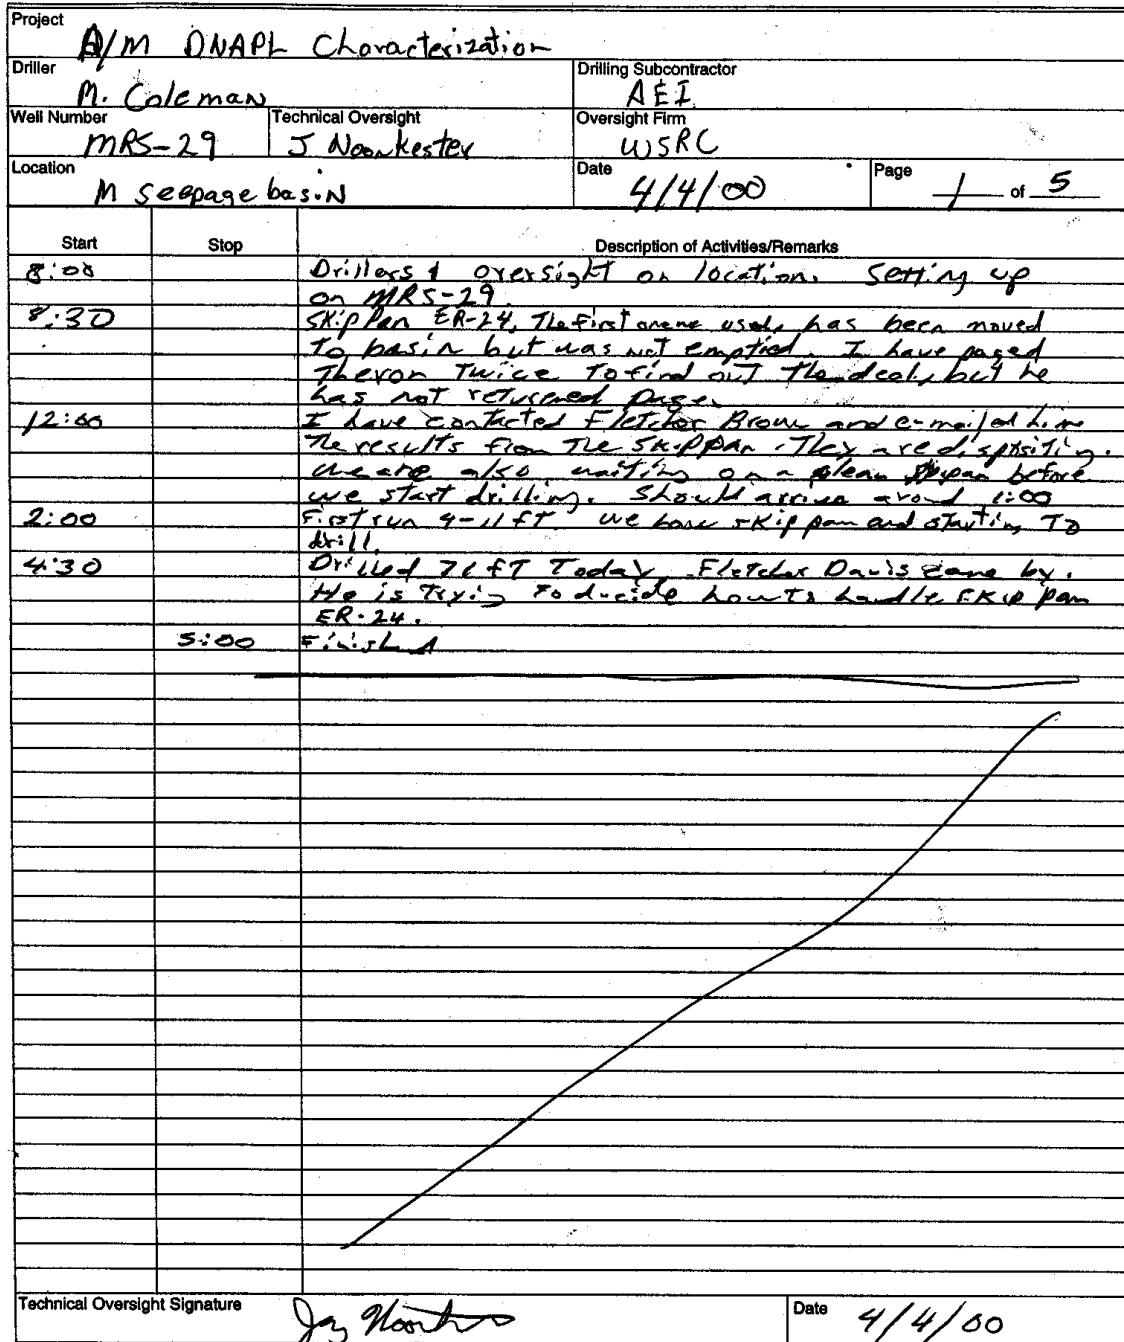 Project
A/M DNAPL Characterization
Driller
M. Coleman
Drilling Subcontractor
AEI
Well Number
MRS-29
Technical Oversight
J Noonkester
Oversight Firm
WSRC
Location
M Seepage basin
Date
4/4/00
Page 1 of 5
Start Stop Description of Activities/Remarks
8:00 Drillers & oversight on location. Setting up
on MRS-29.
8:30 Skip Pan ER-24, The first one we used, has been moved
To basin but was not emptied. I have paged
Theron Twice To find out The deal, but he
has not returned page.
12:00 I have contacted Fletcher Brown and e-mailed him
The results from The skip pan. They are
we are also waiting on a clean pan before
we start drilling. Should arrive around 1:00
2:00 First run 9-11 ft we have skip pan and starting To
drill.
4:30 Drilled 71 fT Today. Fletcher Davis came by.
He is Trying To decide how To handle skip pan
ER-24.
5:00 Finished
Technical Oversight Signature
Jay
Date 4/4/00